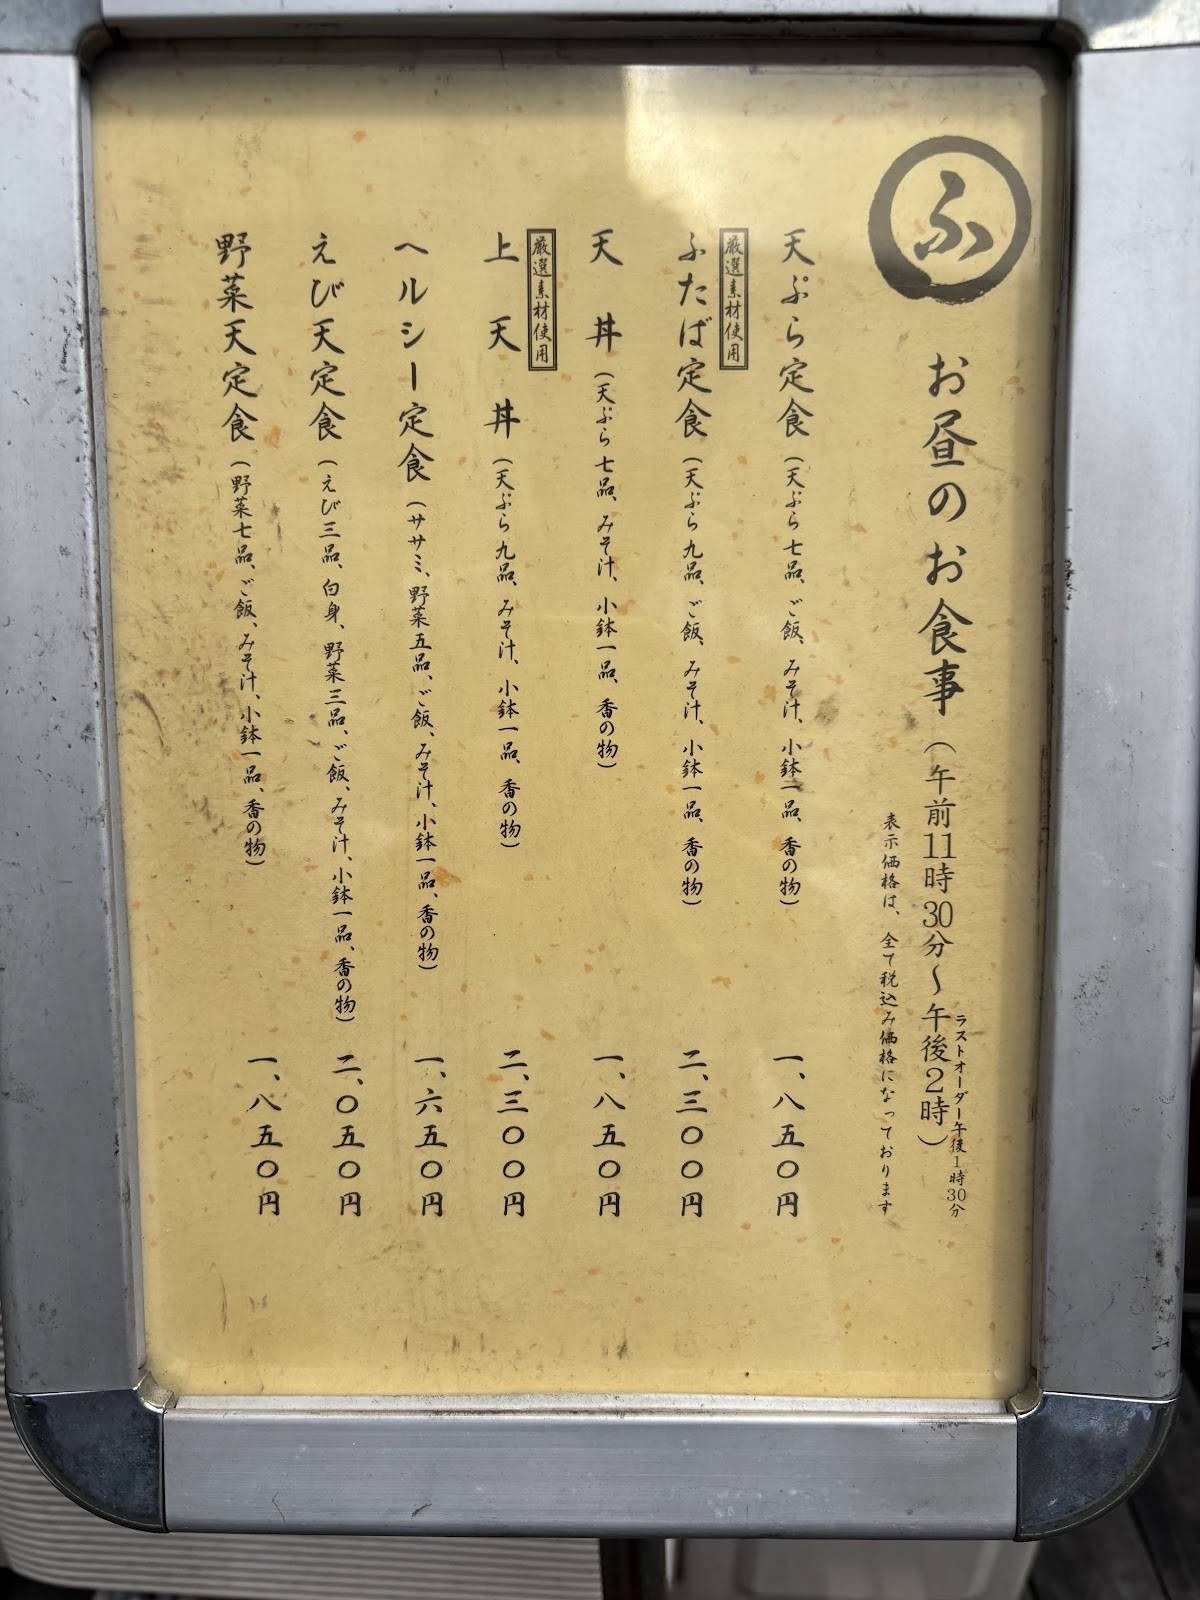 ふ
お昼のお食事（午前11時30分～午後2時）
ラストオーダー午後1時30分
表示価格は、全て税込み価格になっております
天ぷら定食（天ぷら七品、ご飯、みそ汁、小鉢一品、香の物）一、八五〇円
厳選素材使用
ふたば定食（天ぷら九品、ご飯、みそ汁、小鉢一品、香の物）二、三〇〇円
天丼（天ぷら七品、みそ汁、小鉢一品、香の物）一、八五〇円
厳選素材使用
上天丼（天ぷら九品、みそ汁、小鉢一品、香の物）二、三〇〇円
ヘルシー定食（ササミ、野菜五品、ご飯、みそ汁、小鉢一品、香の物）一、六五〇円
えび天定食（えび三品、白身、野菜三品、ご飯、みそ汁、小鉢一品、香の物）二、〇五〇円
野菜天定食（野菜七品、ご飯、みそ汁、小鉢一品、香の物）一、八五〇円